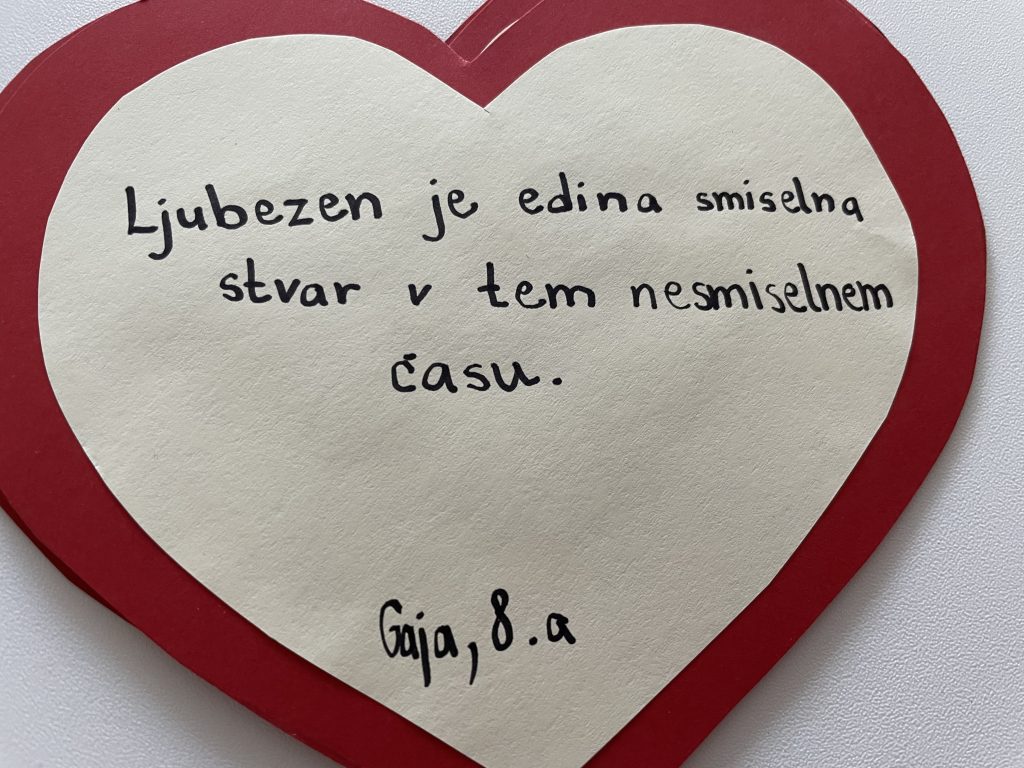 Ljubezen je edina smiselna
stvar v tem nesmiselnem
času.
Gaja, 8.a